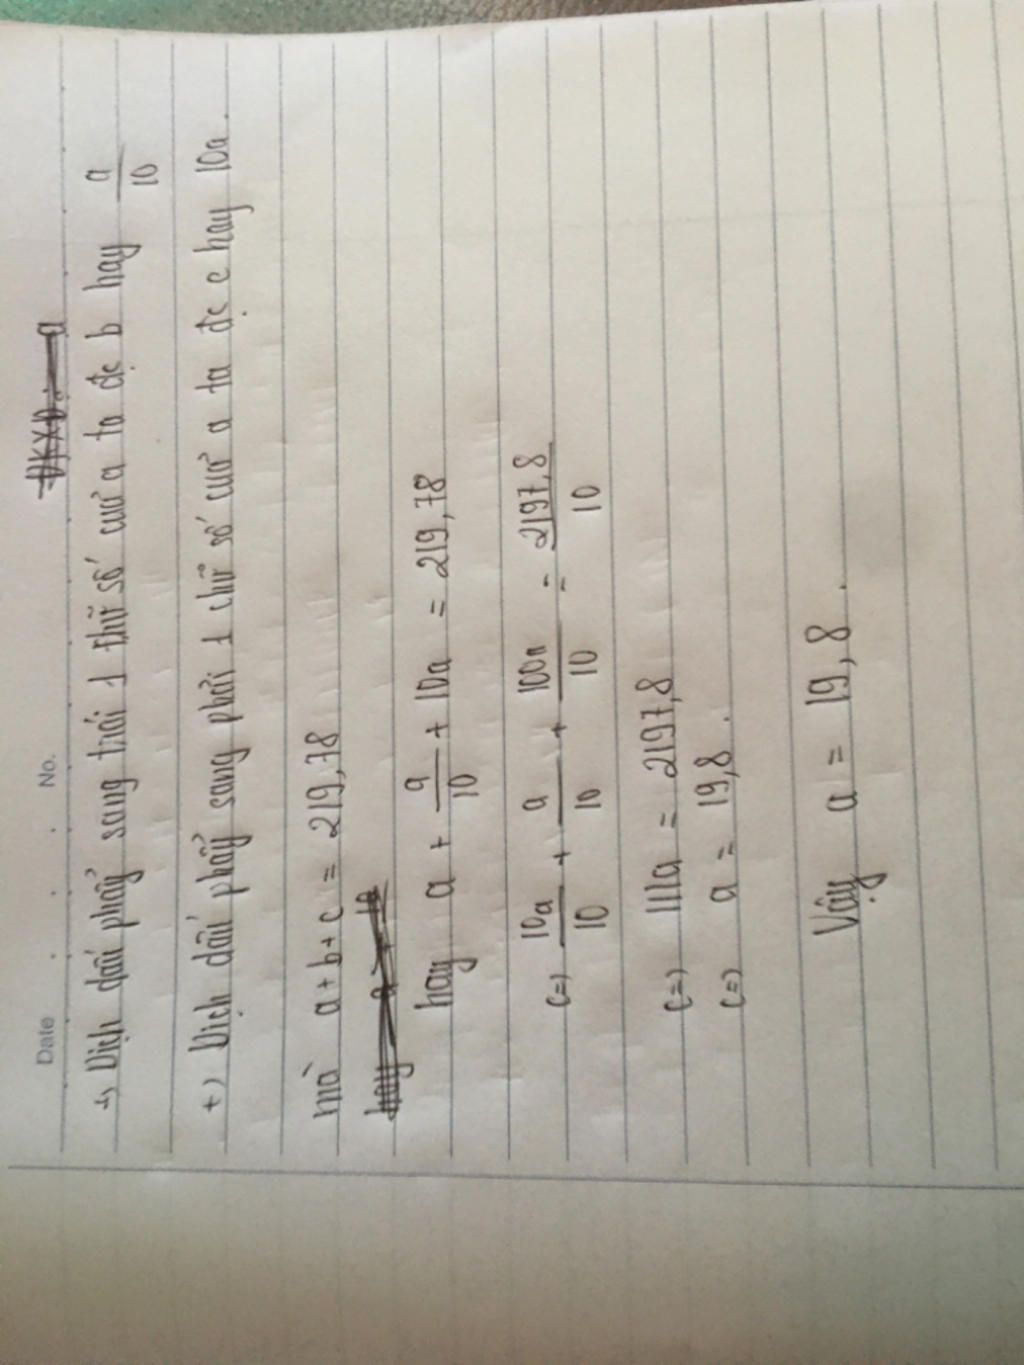 Date . . . No.
ĐKXĐ: a
+) Dịch dấu phẩy sang trái 1 chữ số của a ta đc b hay a/10
+) Dịch dấu phẩy sang phải 1 chữ số của a ta đc c hay 10a.
mà a + b + c = 219,78
hay a + 10
hay a + a/10 + 10a = 219,78
(=) 10a/10 + a/10 + 100a/10 = 2197,8/10
(=) 111a = 2197,8
(=) a = 19,8.
Vậy a = 19,8.